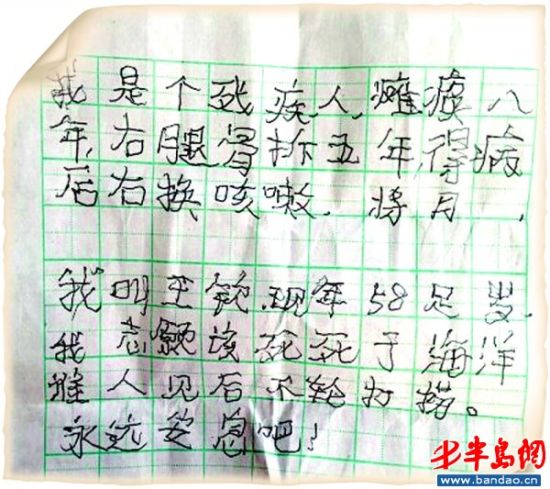 我是个残疾人,瘫痪八
年,右腿骨折五年,得病
后右换咳嗽,将月,
我叫王钦,现年58足岁,
我志愿该死死于海洋
谁人见后不轮打捞。
永远安息吧!
半島網
www.bandao.cn